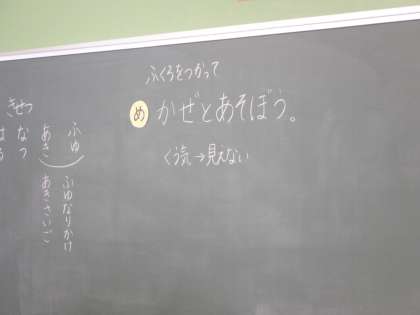 ふくろをつかって
め かぜとあそぼう。
くう気→見えない
きせつ
はる
なつ
あき
ふゆ
ふゆなりかけ
あきさいご